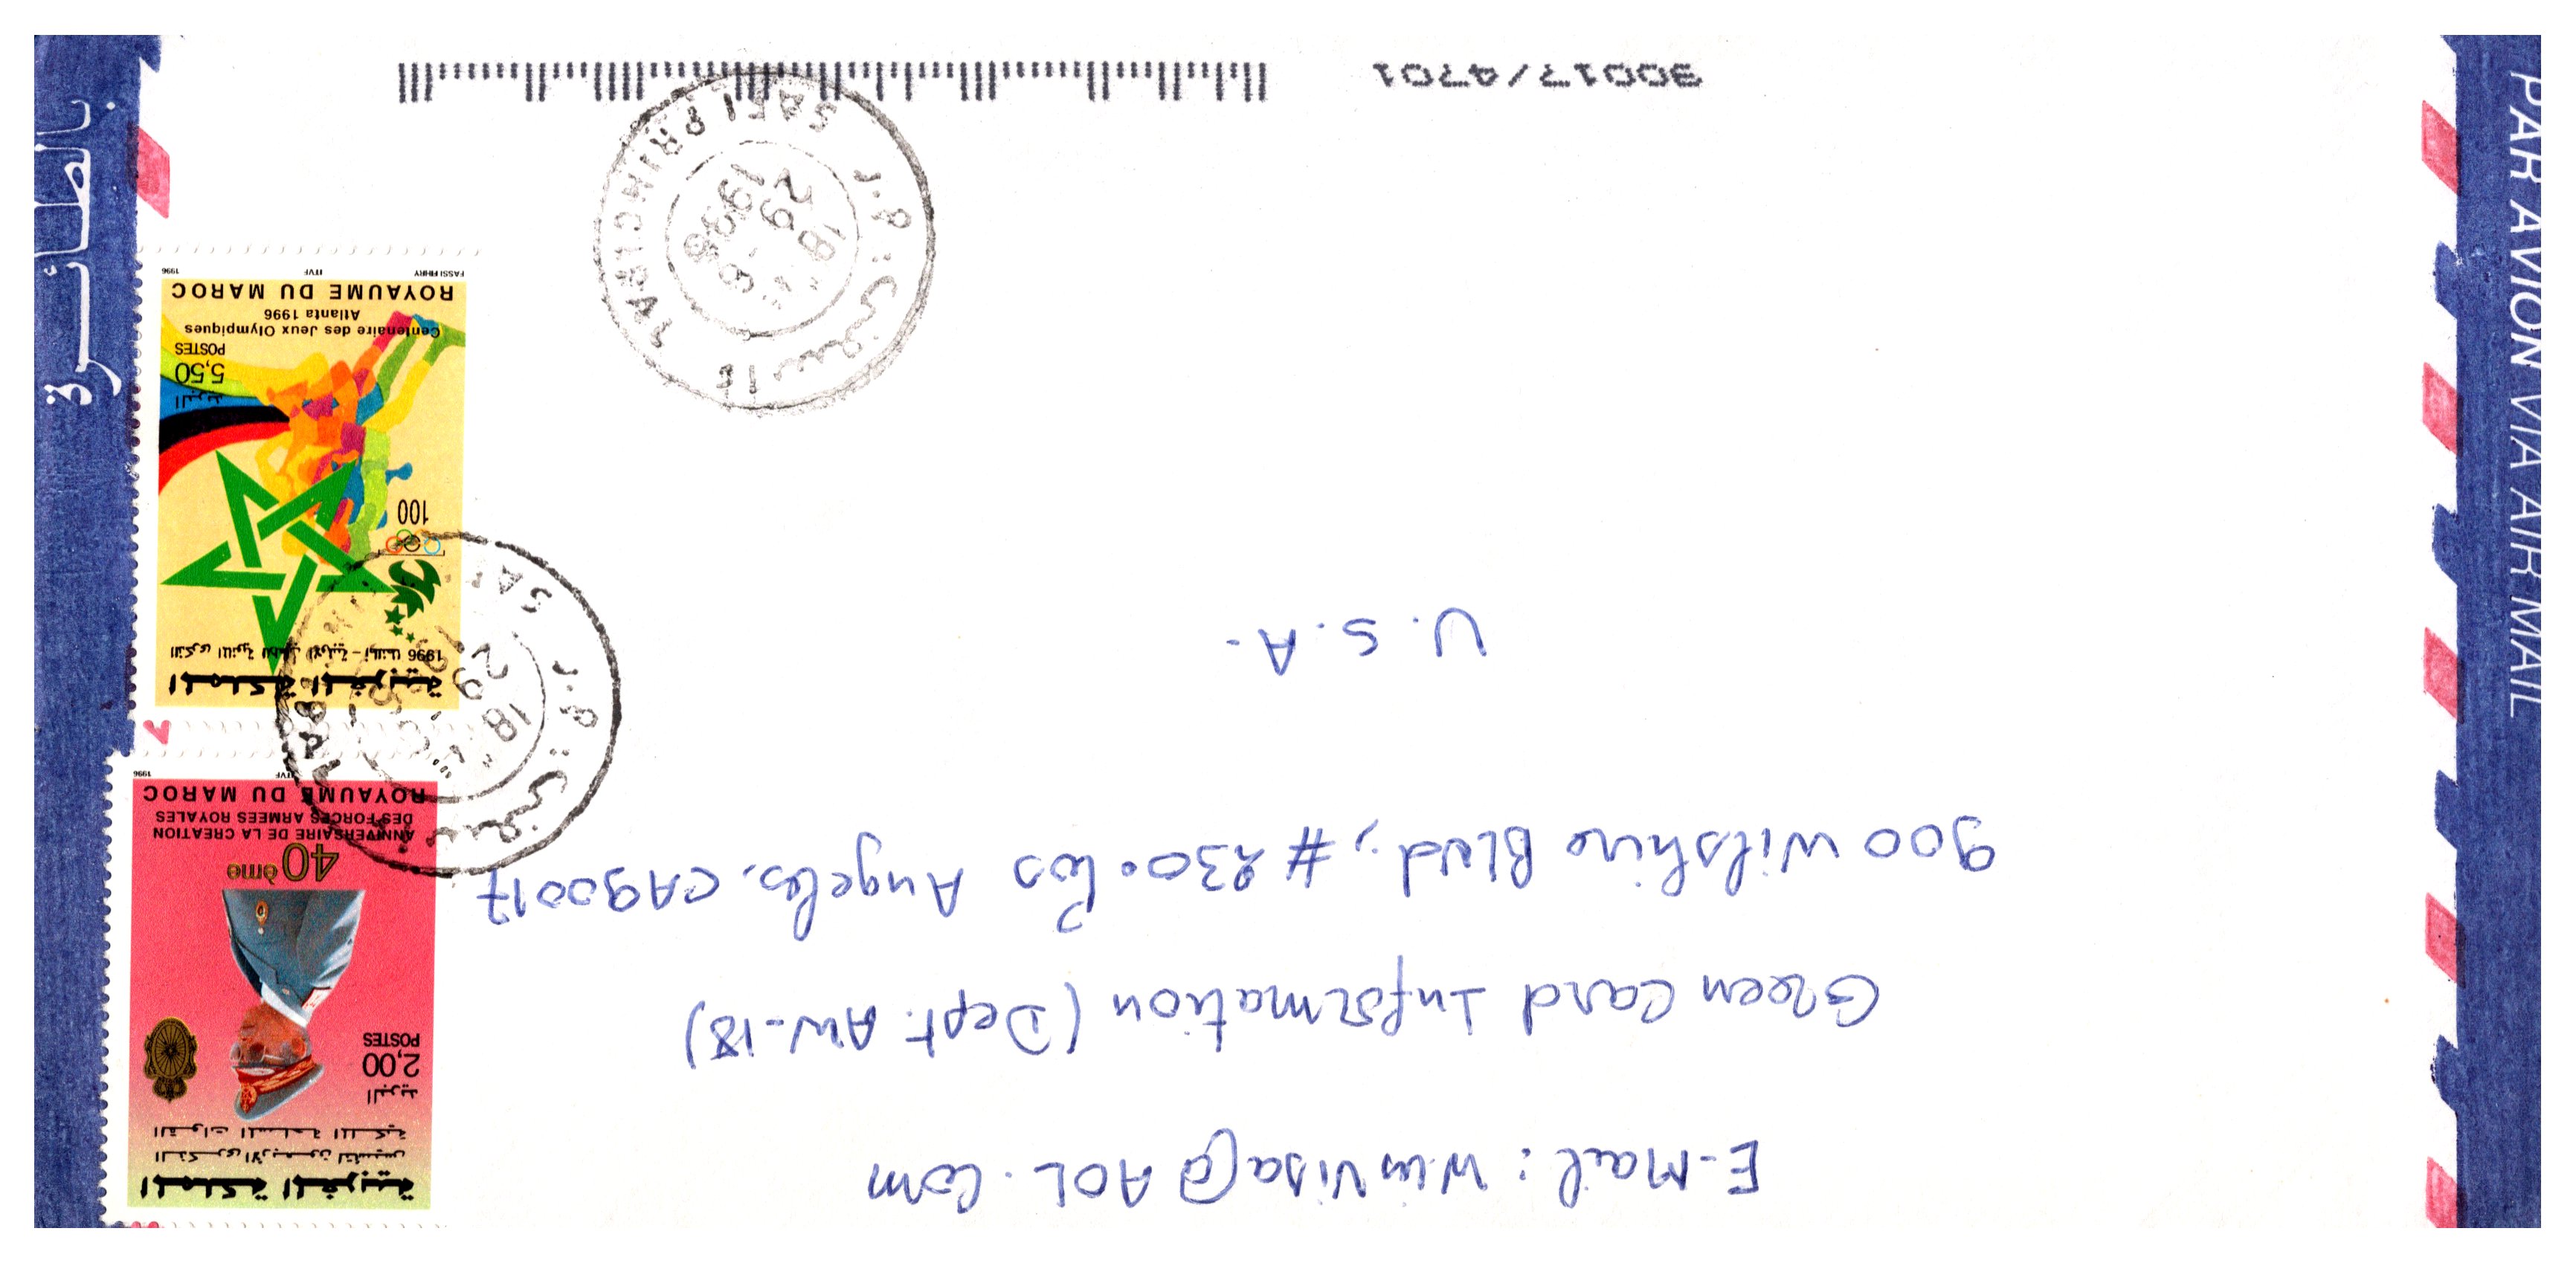 E-Mail: WinVisa@AOL.Com
Green Card Information (Dept. AW-18)
900 Wilshire Blvd, # 230. Los Angeles, CA 90017
U.S.A-
المملكة المغربية
الذكرى الأربعون لتأسيس
القوات المسلحة الملكية
البريد
2,00
POSTES
40ème
ANNIVERSAIRE DE LA CREATION
DES FORCES ARMEES ROYALES
ROYAUME DU MAROC
ITVF 1996
المملكة المغربية
الذكرى المئوية للألعاب الأولمبية - أتلانتا 1996
100
البريد
5,50
POSTES
Centenaire des Jeux Olympiques
Atlanta 1996
ROYAUME DU MAROC
FASSI FIHRY ITVF 1996
SAFI PRINCIPAL
آسفي
18
29 -6
1998
آسفي
SAFI
18
29
90017/4701
PAR AVION VIA AIR MAIL
بالطائرة